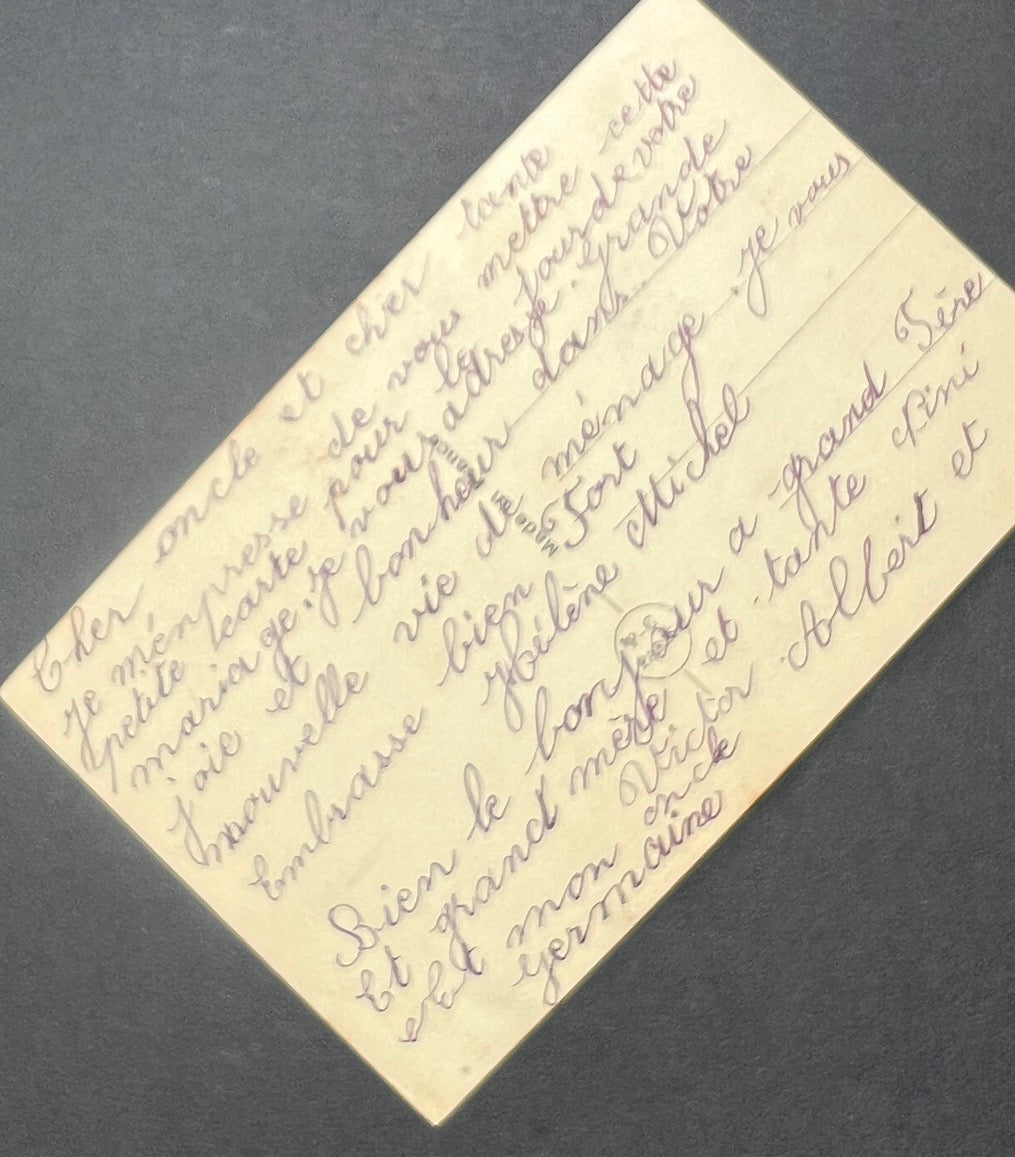 Cher oncle et cher tante
Je m'émpresse de vous mettre cette
petite carte pour le jour de votre
mariage. Je vous adresse. Grande
Joie et bonheur dans Votre
nouvelle vie de ménage. Je vous
Embrasse bien Fort
Hélène Michel
Bien le bonjour a grand Père
Et grand mère et tante Nini
Et mon Victor Albert et
oncle
germaine
Made in France